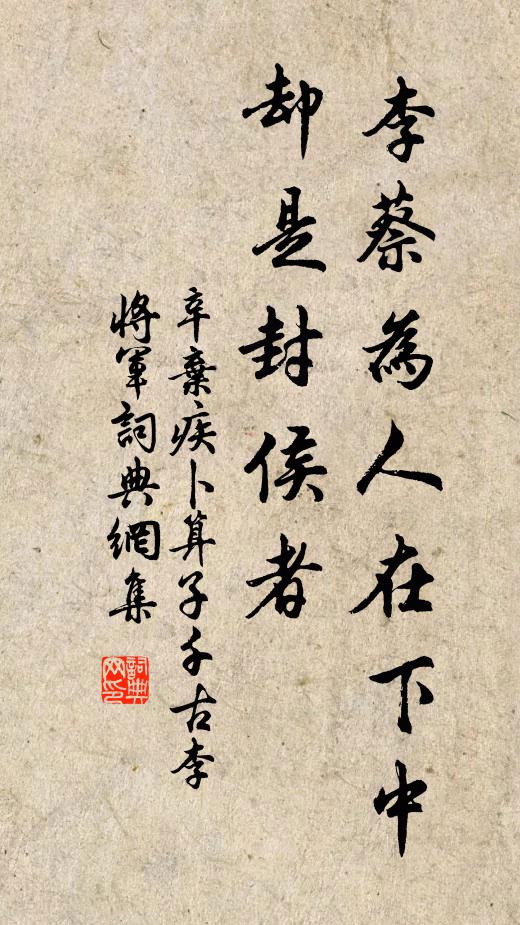 李蔡為人在下中
却是封侯者
辛棄疾卜算子千古李
將軍詞典網集
詞典网印